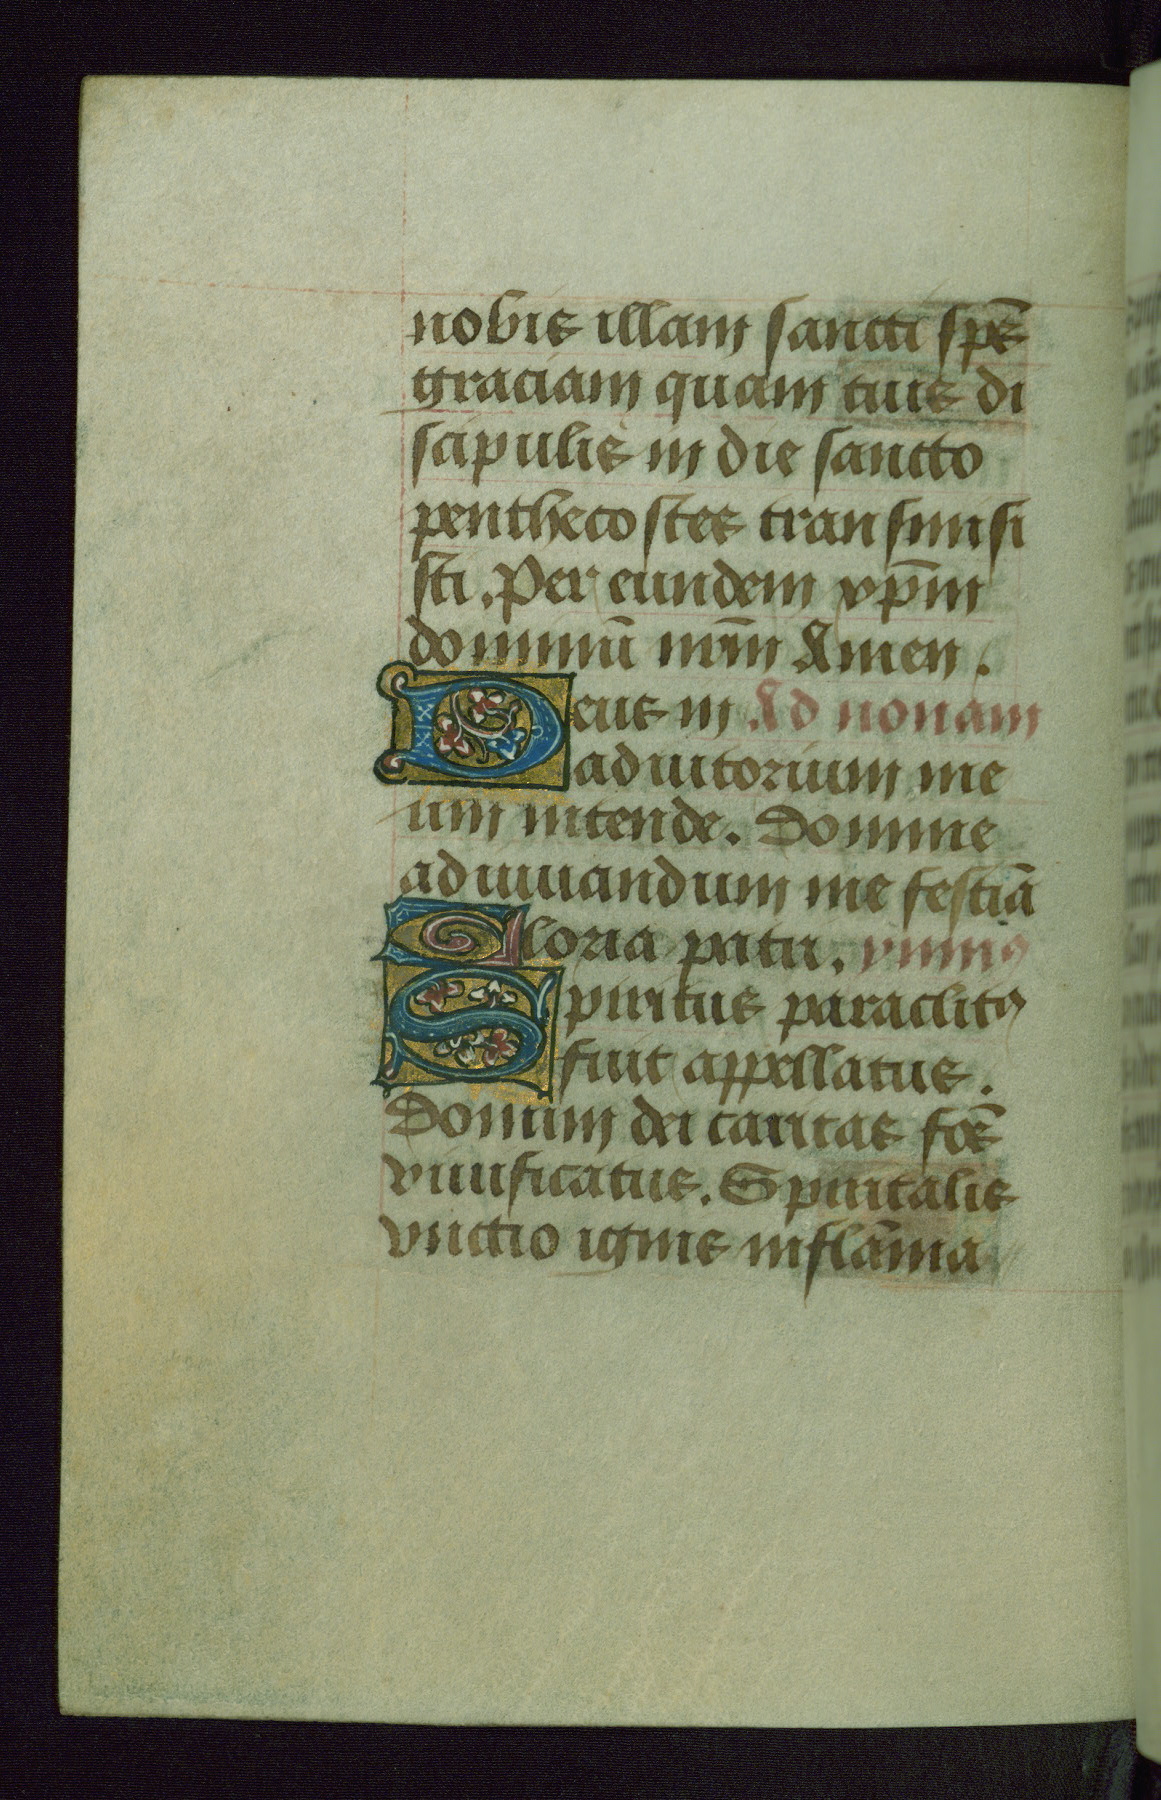 nobis illam sancti sp̄s
graciam quam tuis di
scipulis in die sancto
penthecostes transmisi
sti. Per eundem xp̄m
dominū nr̄m Amen.
Deus in Ad nonam
adiutorium me
um intende. Domine
adiuuandum me festiā
Gloria patri. ymnꝰ
Spiritus paraclitꝰ
fuit appellatus.
Donum dei caritas fōs
viuificatus. Spiritalis
vnctio igms inflāma